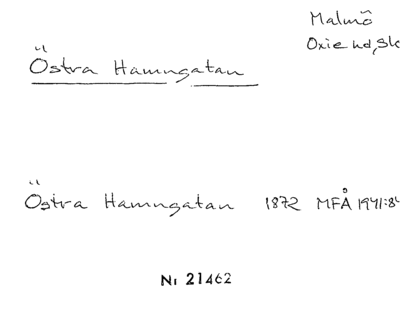 Malmö
Oxie hd, Sk
Östra Hamngatan
Östra Hamngatan 1872 MFÅ 1941:84
Nr 21462